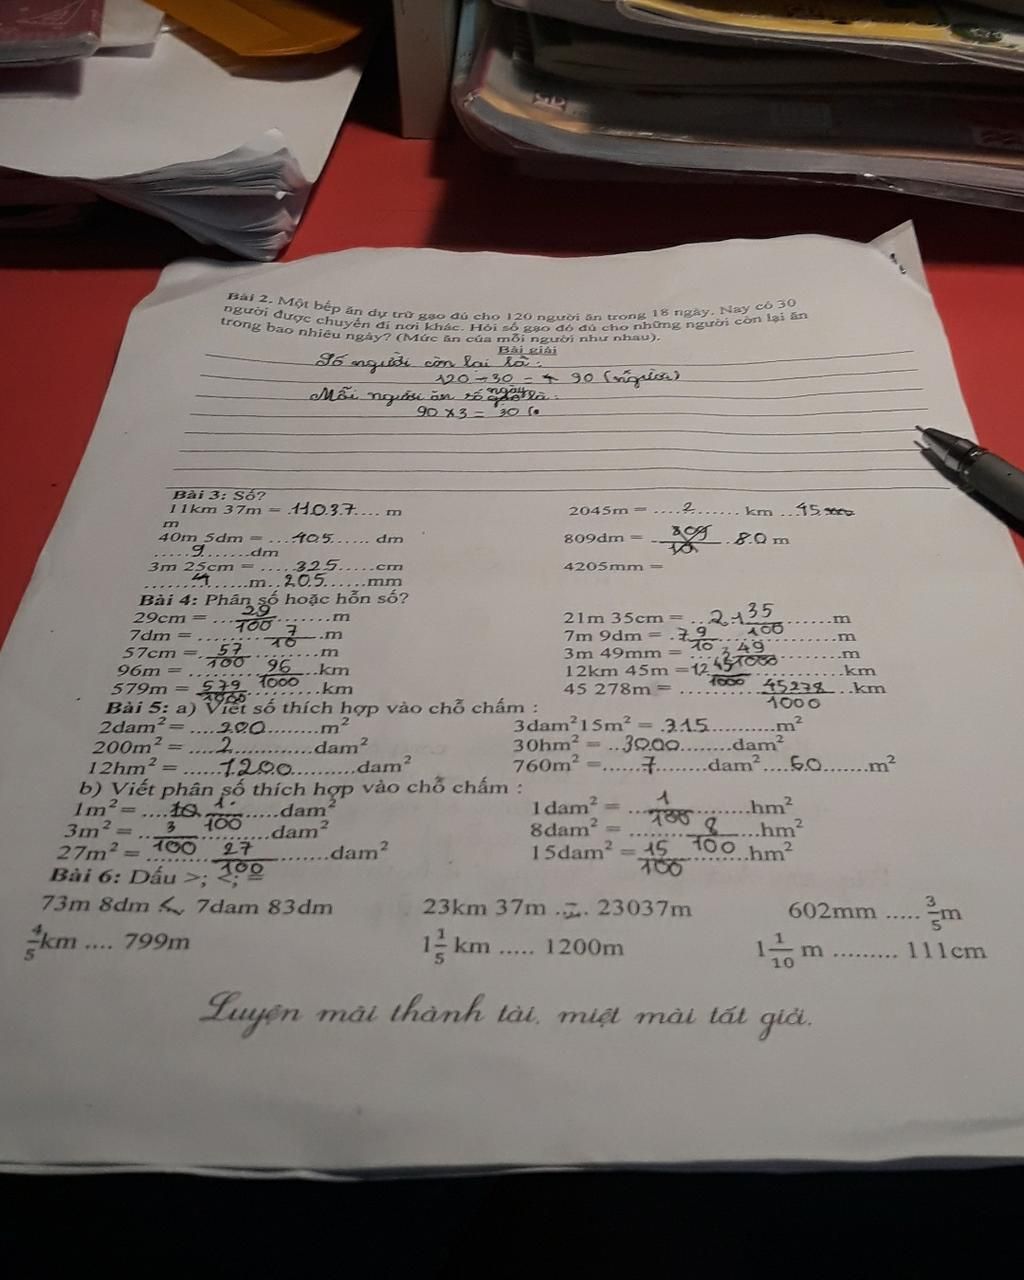 Bài 2. Một bếp ăn dự trữ gạo đủ cho 120 người ăn trong 18 ngày. Nay có 30
người được chuyển đi nơi khác. Hỏi số gạo đó đủ cho những người còn lại ăn
trong bao nhiêu ngày? (Mức ăn của mỗi người như nhau).
Bài giải
Số người còn lại là:
120 - 30 = 90 (người)
Mỗi người ăn số ngày là:
90 x 3 = 30 (
Bài 3: Số?
11km 37m = .11037.... m 2045m = ....2....... km ...45
m
40m 5dm = ...405...... dm 809dm = ...80 m
.....9......dm
3m 25cm = ....325.....cm 4205mm =
......4......m..205......mm
Bài 4: Phân số hoặc hỗn số?
29cm = ...29/100.........m 21m 35cm = ..21 35/100.......m
7dm = .........7/10...m 7m 9dm = .7 9/10..............m
57cm =..57/100..........m 3m 49mm = ...3 49/1000.........m
96m = .........96/1000..km 12km 45m =12 45/1000...........km
579m = 579/1000..........km 45 278m = .........45278/1000...km
Bài 5: a) Viết số thích hợp vào chỗ chấm :
2dam² = ....200........m² 3dam²15m² = .315...........m²
200m² = ....2............dam² 30hm² = ..3000........dam²
12hm² = ......1200..........dam² 760m² =......7.......dam²....60.......m²
b) Viết phân số thích hợp vào chỗ chấm :
1m² = ....1/100.....dam² 1dam² = ...1/100........hm²
3m² = ..3/100..........dam² 8dam² = .........8/100...hm²
27m² = .........27/100..........dam² 15dam² = 15/100..........hm²
Bài 6: Dấu >; <; =
73m 8dm < 7dam 83dm 23km 37m ..=.. 23037m 602mm ..... 3/5m
4/5km .... 799m 1 1/5 km ..... 1200m 1 1/10 m ......... 111cm
Luyện mãi thành tài, miệt mài tất giỏi.